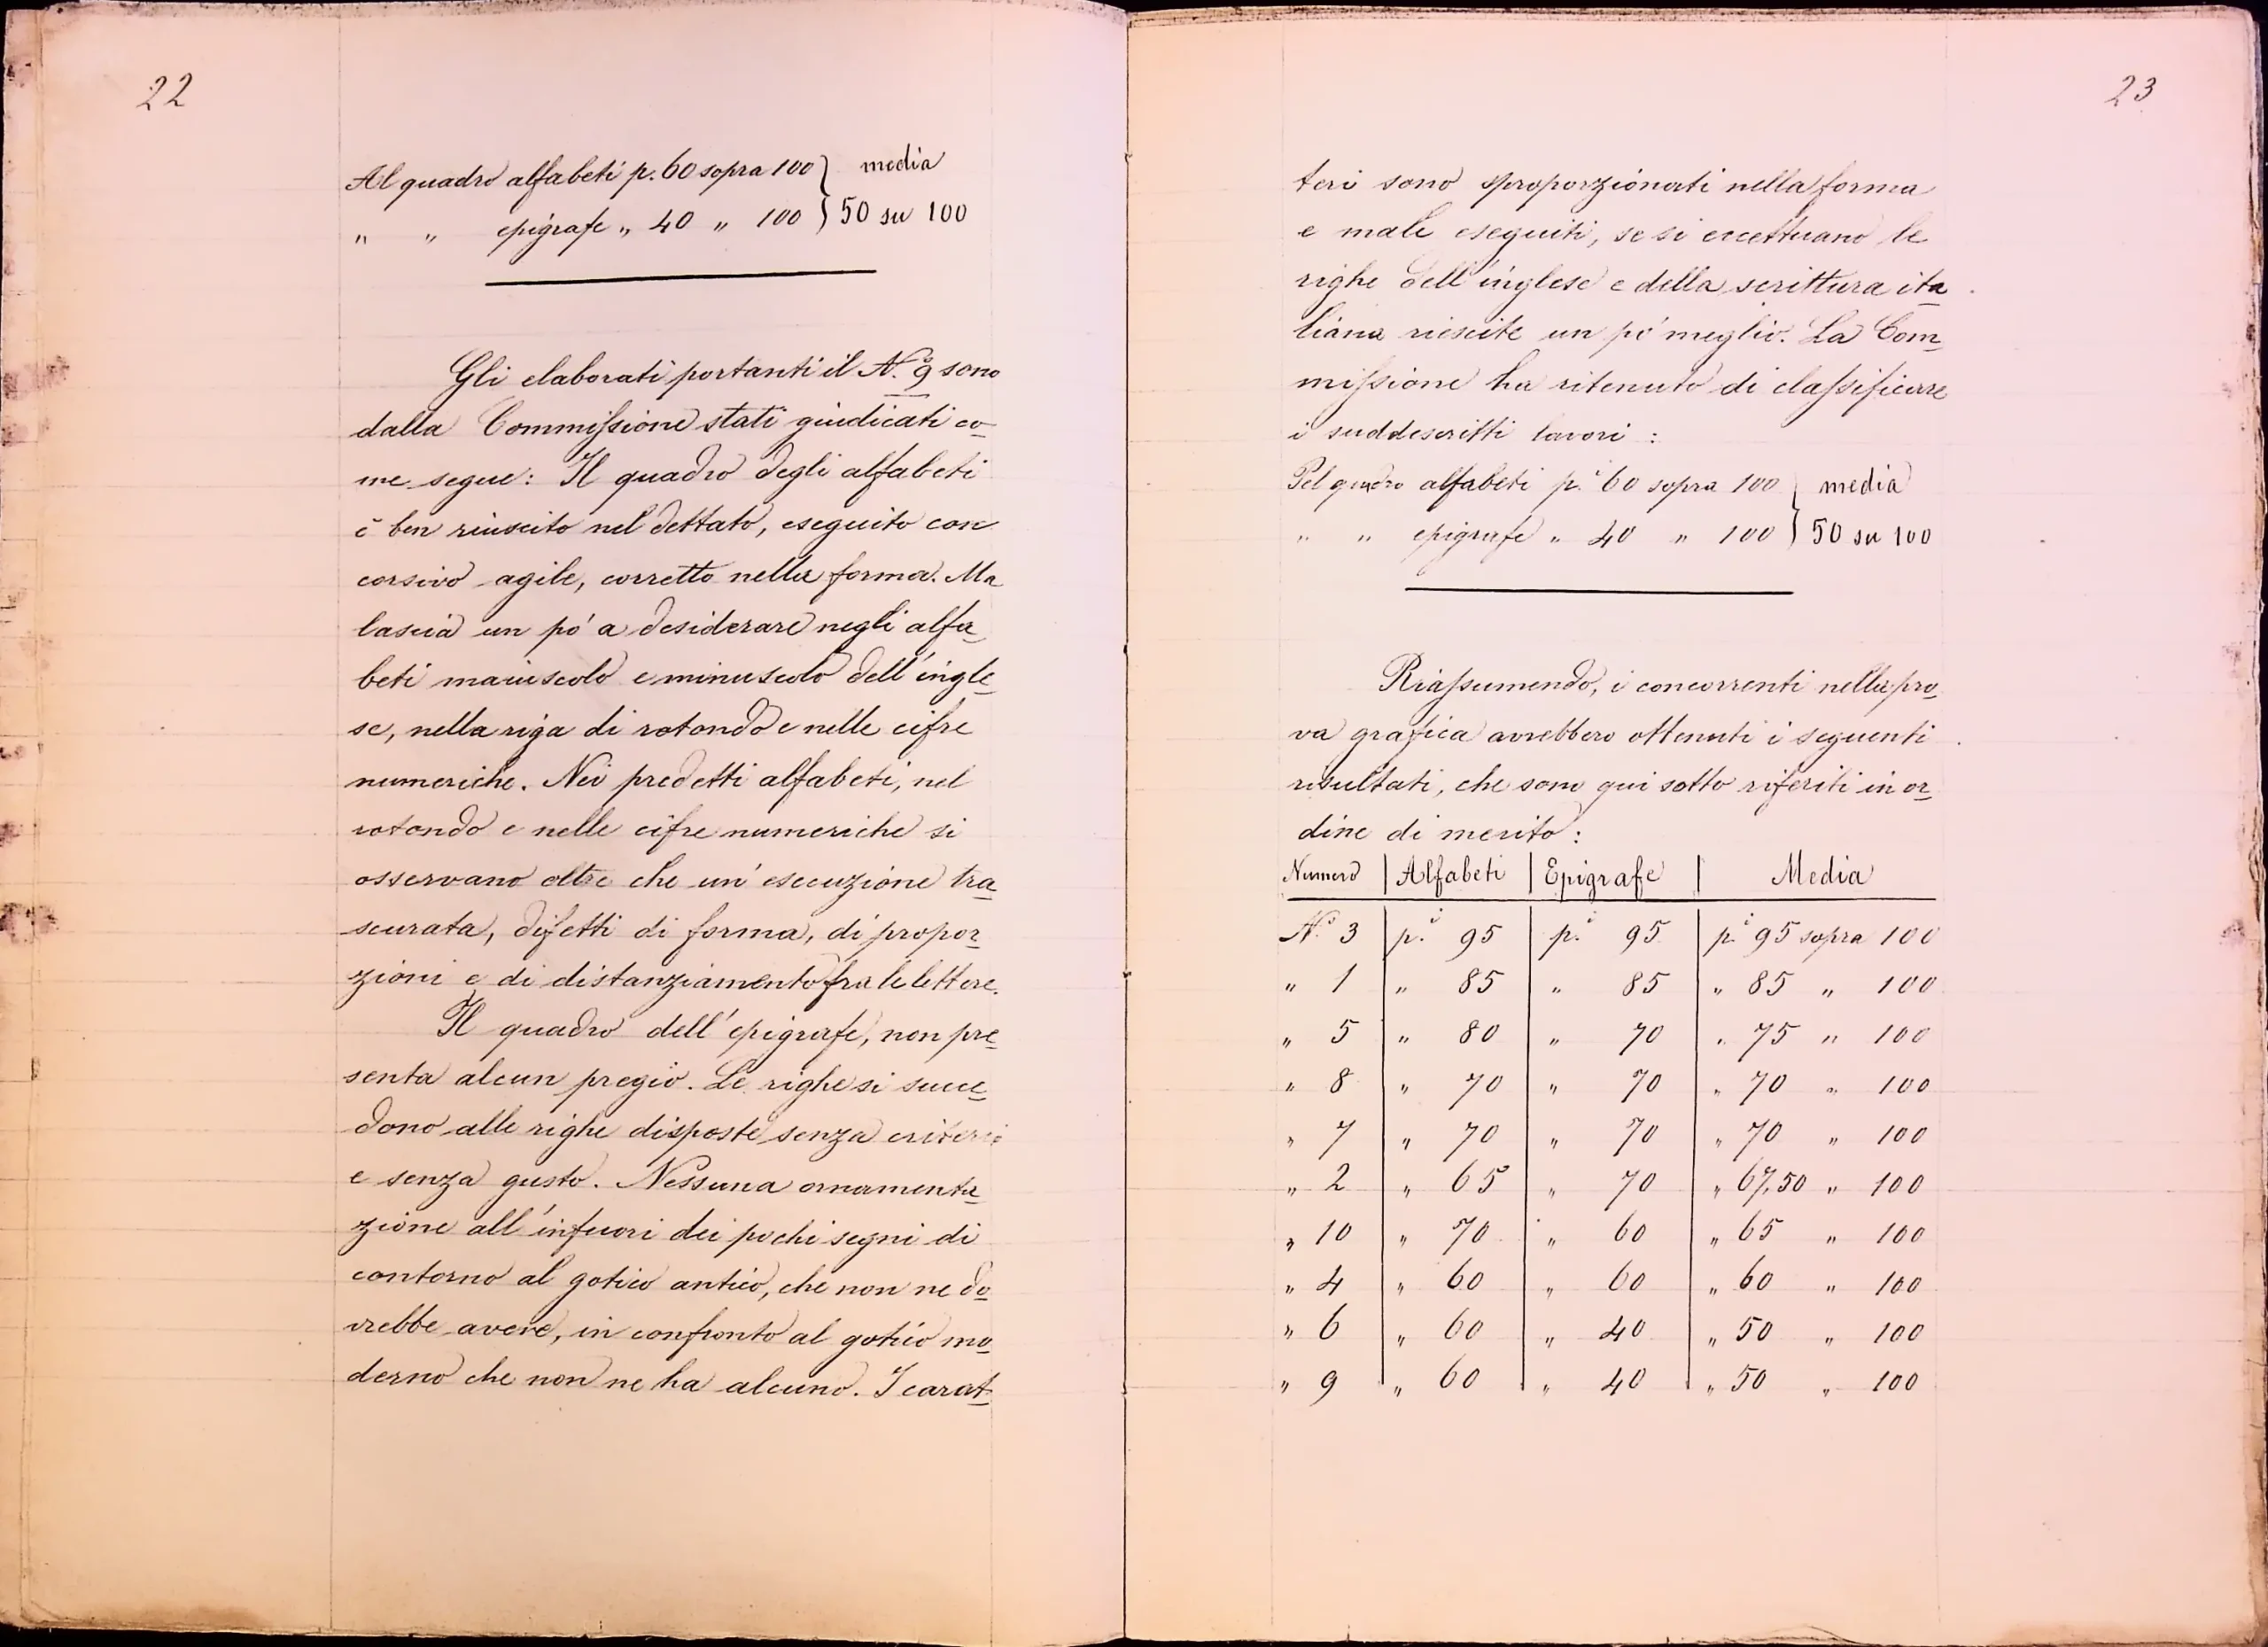 22
Al quadro alfabeti p. 60 sopra 100 } media
" " epigrafe " 40 " 100 } 50 su 100
Gli elaborati portanti il N.° 9 sono
dalla Commissione stati giudicati co-
me segue: Il quadro degli alfabeti
è ben riuscito nel dettato, eseguito con
corsivo agile, corretto nella forma. Ma
lascia un pò a desiderare negli alfa-
beti maiuscolo e minuscolo dell'ingle-
se, nella riga di rotondo e nelle cifre
numeriche. Nei predetti alfabeti, nel
rotondo e nelle cifre numeriche si
osservano oltre che un'esecuzione tra-
scurata, difetti di forma, di propor-
zioni e di distanziamento fra le lettere.
Il quadro dell'epigrafe, non pre-
senta alcun pregio. Le righe si succe-
dono alle righe disposte senza criterio
e senza gusto. Nessuna ornamenta-
zione all'infuori dei pochi segni di
contorno al gotico antico, che non ne do-
vrebbe avere, in confronto al gotico mo-
derno che non ne ha alcuno. I carat-
23
teri sono sproporzionati nella forma
e male eseguiti, se si eccettuano le
righe dell'inglese e della scrittura ita-
liana riescite un pò meglio. La Com-
missione ha ritenuto di classificare
i suddescritti lavori :
Pel quadro alfabeti p.i 60 sopra 100 } media
" " epigrafe " 40 " 100 } 50 su 100
Riassumendo, i concorrenti nella pro-
va grafica avrebbero ottenuti i seguenti
risultati, che sono qui sotto riferiti in or-
dine di merito :
Numero | Alfabeti | Epigrafe | Media
N.° 3 | p.i 95 | p.i 95 | p.i 95 sopra 100
" 1 | " 85 | " 85 | " 85 " 100
" 5 | " 80 | " 70 | " 75 " 100
" 8 | " 70 | " 70 | " 70 " 100
" 7 | " 70 | " 70 | " 70 " 100
" 2 | " 65 | " 70 | " 67,50 " 100
" 10 | " 70 | " 60 | " 65 " 100
" 4 | " 60 | " 60 | " 60 " 100
" 6 | " 60 | " 40 | " 50 " 100
" 9 | " 60 | " 40 | " 50 " 100